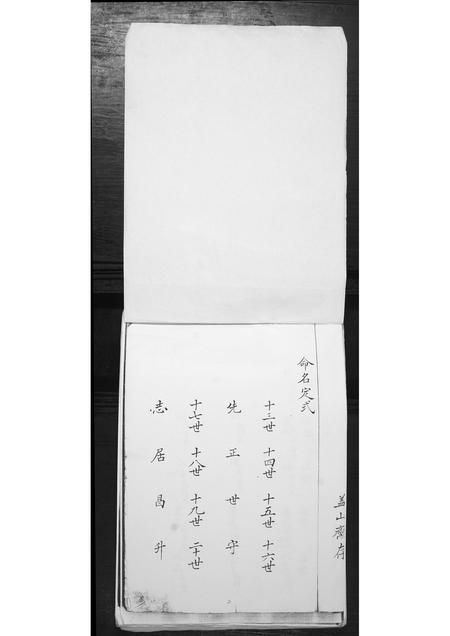 盖山齋存
命名定式
十三世 十四世 十五世 十六世
先 正 世 守
十七世 十八世 十九世 二十世
志 居 昌 升